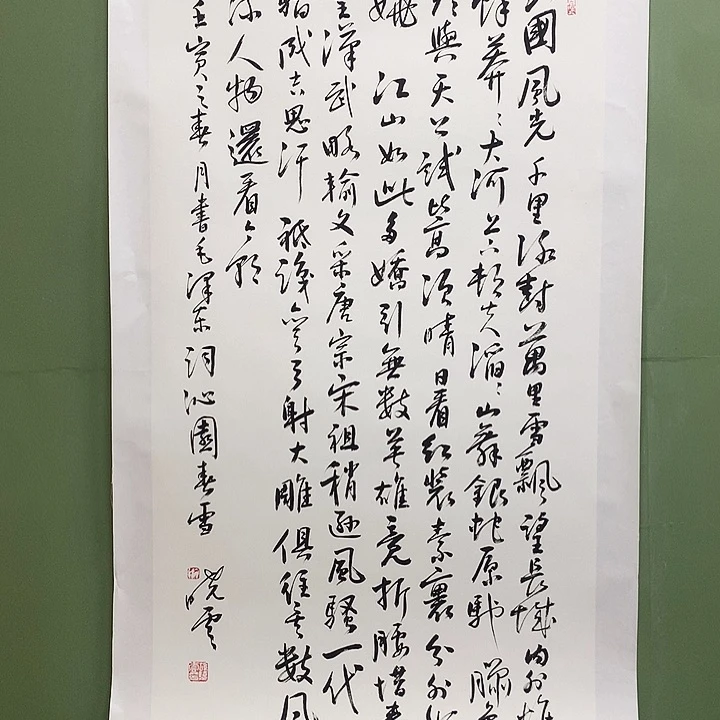 國風光千里冰封萬里雪飄望長城内外惟
餘莽〻大河上下頓失滔〻山舞銀蛇原馳臘
與天公試比高須晴日看紅裝素裹分外
嬈 江山如此多嬌引無數英雄竞折腰惜秦
皇漢武略輸文采唐宗宋祖稍遜風騷一代
驕成吉思汗祗識彎弓射大雕俱往矣數風
流人物還看今朝
壬寅之春月書毛澤东詞沁園春雪
曉雲